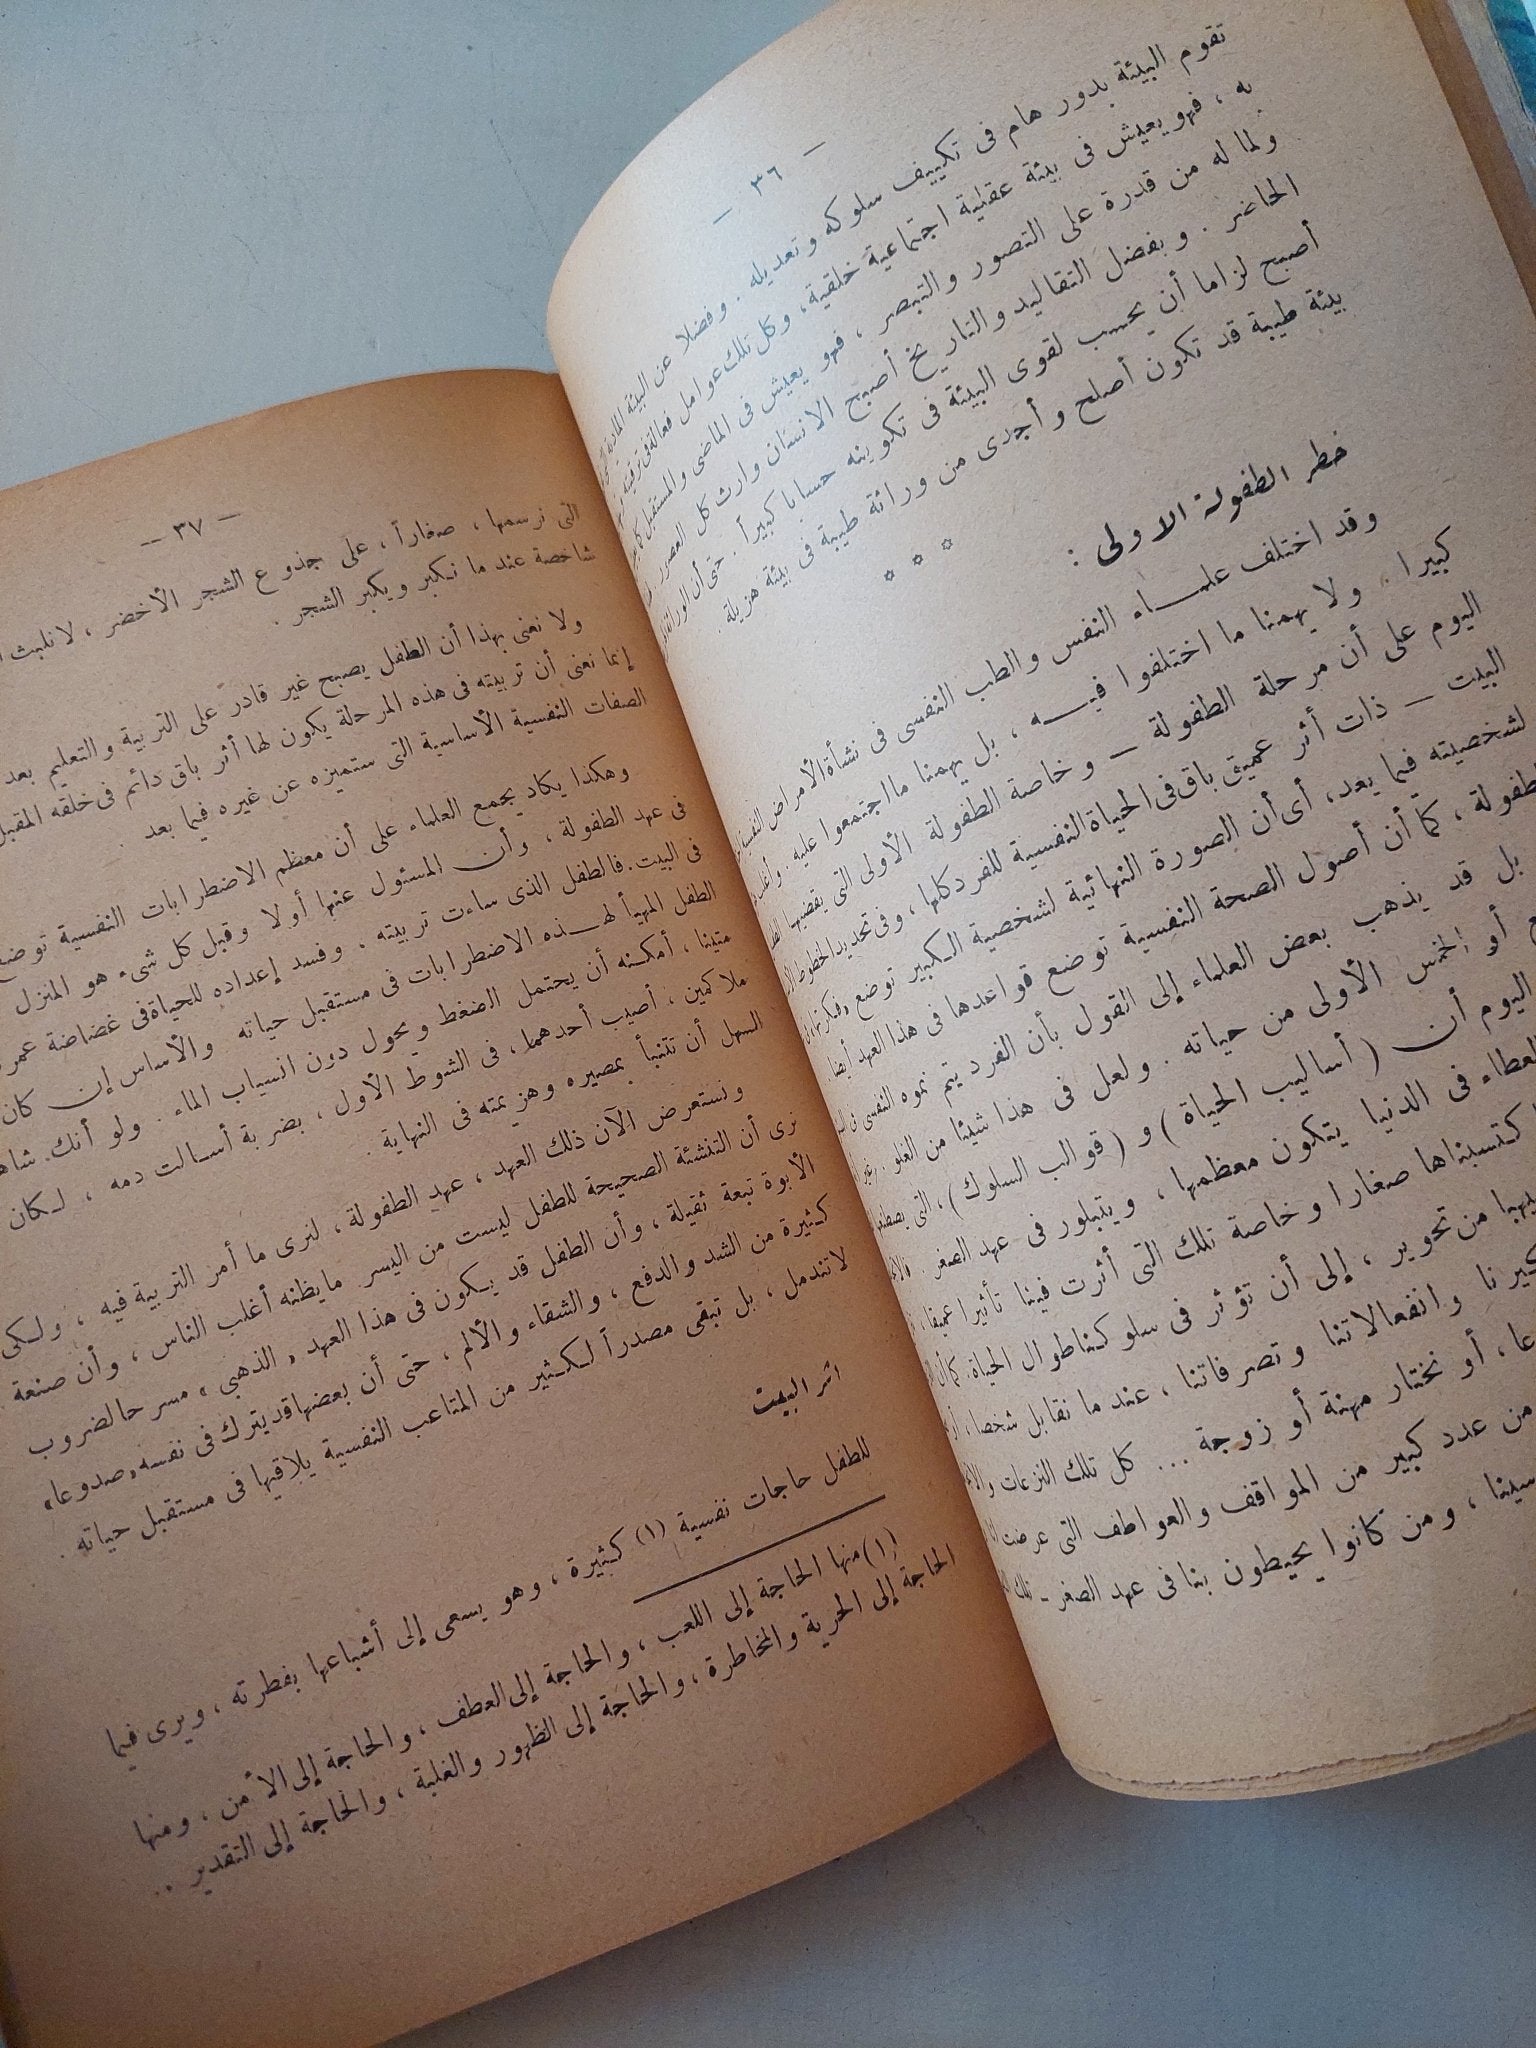 — ٣٦ —
تقوم البيئة بدور هام فى تكييف سلوكه وتعديله . وفضلا عن البيئة المادية
به ، فهو يعيش فى بيئة عقلية اجتماعية خلقية ، وكل تلك عوامل فعالة فى ترقيته
ولما له من قدرة على التصور والتبصر ، فهو يعيش فى الماضى والمستقبل
الحاضر . وبفضل التقاليد والتاريخ أصبح الانسان وارث كل العصور
أصبح لزاما أن يحسب لقوى البيئة فى تكوينه حسابا كبيراً . حتى أن الوراثة
بيئة طيبة قد تكون أصلح وأجدى من وراثة طيبة فى بيئة هزيلة .
خطر الطفولة الاولى :
وقد اختلف علماء النفس والطب النفسى فى نشأة الأمراض النفسية
كبيرا . ولا يهمنا ما اختلفوا فيه ، بل يهمنا ما اجتمعوا عليه .
اليوم على أن مرحلة الطفولة — وخاصة الطفولة الأولى التى يقضيها
البيت — ذات أثر عميق باق فى الحياة النفسية للفرد كلها ، وفى تحديد الخطوط
لشخصيته فيما بعد ، أى أن الصورة النهائية لشخصية الكبير توضع
الطفولة ، كما أن أصول الصحة النفسية توضع قواعدها فى هذا العهد أيضا .
بل قد يذهب بعض العلماء إلى القول بأن الفرد يتم نموه النفسى فى
أو الخمس الأولى من حياته . ولعل فى هذا شيئا من الغلو .
اليوم أن ( أساليب الحياة ) و ( قوالب السلوك ) ، التى
العطاء فى الدنيا يتكون معظمها ، ويتبلور فى عهد الصغر .
اكتسبناها صغارا وخاصة تلك التى أثرت فينا تأثيرا عميقا ،
من تحوير ، إلى أن تؤثر فى سلوكنا طوال الحياة .
وانفعالاتنا وتصرفاتنا ، عندما نقابل شخصا ،
أو نختار مهنة أو زوجة ... كل تلك النزعات
من عدد كبير من المواقف والعواطف التى عرضت
، ومن كانوا يحيطون بنا فى عهد الصغر - تلك
— ٣٧ —
التى نرسمها ، صغاراً ، على جذوع الشجر الأخضر ، لا نلبث
شاخصة عند ما نكبر ويكبر الشجر .
ولا نعنى بهذا أن الطفل يصبح غير قادر على التربية والتعليم بعد
إنما نعنى أن تربيته فى هذه المرحلة يكون لها أثر باق دائم فى خلقه المقبل
الصفات النفسية الأساسية التى ستميزه عن غيره فيما بعد .
وهكذا يكاد يجمع العلماء على أن معظم الاضطرابات النفسية توضع
فى عهد الطفولة ، وأن المسئول عنها أولا وقبل كل شىء هو المنزل
فى البيت . فالطفل الذى ساءت تربيته ، وفسد إعداده للحياة فى غضاضة عمره
الطفل المهيأ لهذه الاضطرابات فى مستقبل حياته والأساس إن كان
متينا ، أمكنه أن يحتمل الضغط ويحول دون انسياب الماء . ولو أنك
ملاكمين ، أصيب أحدهما ، فى الشوط الأول ، بضربة أسالت دمه ، لكان
السهل أن تتنبأ بمصيره وهزيمته فى النهاية .
ونستعرض الآن ذلك العهد ، عهد الطفولة ، لنرى ما أمر التربية فيه ، ولكى
نرى أن التنشئة الصحيحة للطفل ليست من اليسر ما يظنه أغلب الناس ، وأن صنعة
الأبوة تبعة ثقيلة ، وأن الطفل قد يكون فى هذا العهد « الذهبى » مسرحا لضروب
كثيرة من الشد والدفع ، والشقاء والألم ، حتى أن بعضها قد يترك فى نفسه « صدوعا »
لا تندمل ، بل تبقى مصدراً لكثير من المتاعب النفسية يلاقيها فى مستقبل حياته .
اثر البيت
للطفل حاجات نفسية (١) كثيرة ، وهو يسعى إلى أشباعها بفطرته ، ويرى فيما
(١) منها الحاجة إلى اللعب ، والحاجة إلى العطف ، والحاجة إلى الأمن ، ومنها
الحاجة إلى الحرية والمخاطرة ، والحاجة إلى الظهور والغلبة ، والحاجة إلى التقدير ..